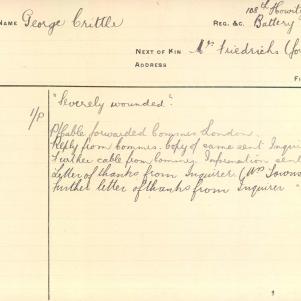 NAME George Crittle REG. &C. 108th Howitzer Battery
NEXT OF KIN Mrs Friedrichs
ADDRESS
"Severely wounded".
cable forwarded Commrs London.
Reply from Commrs. Copy of same sent Inquirer
Further cable from Commrs. Information sent
Letter of thanks from Inquirer (Mrs
Further letter of thanks from Inquirer "